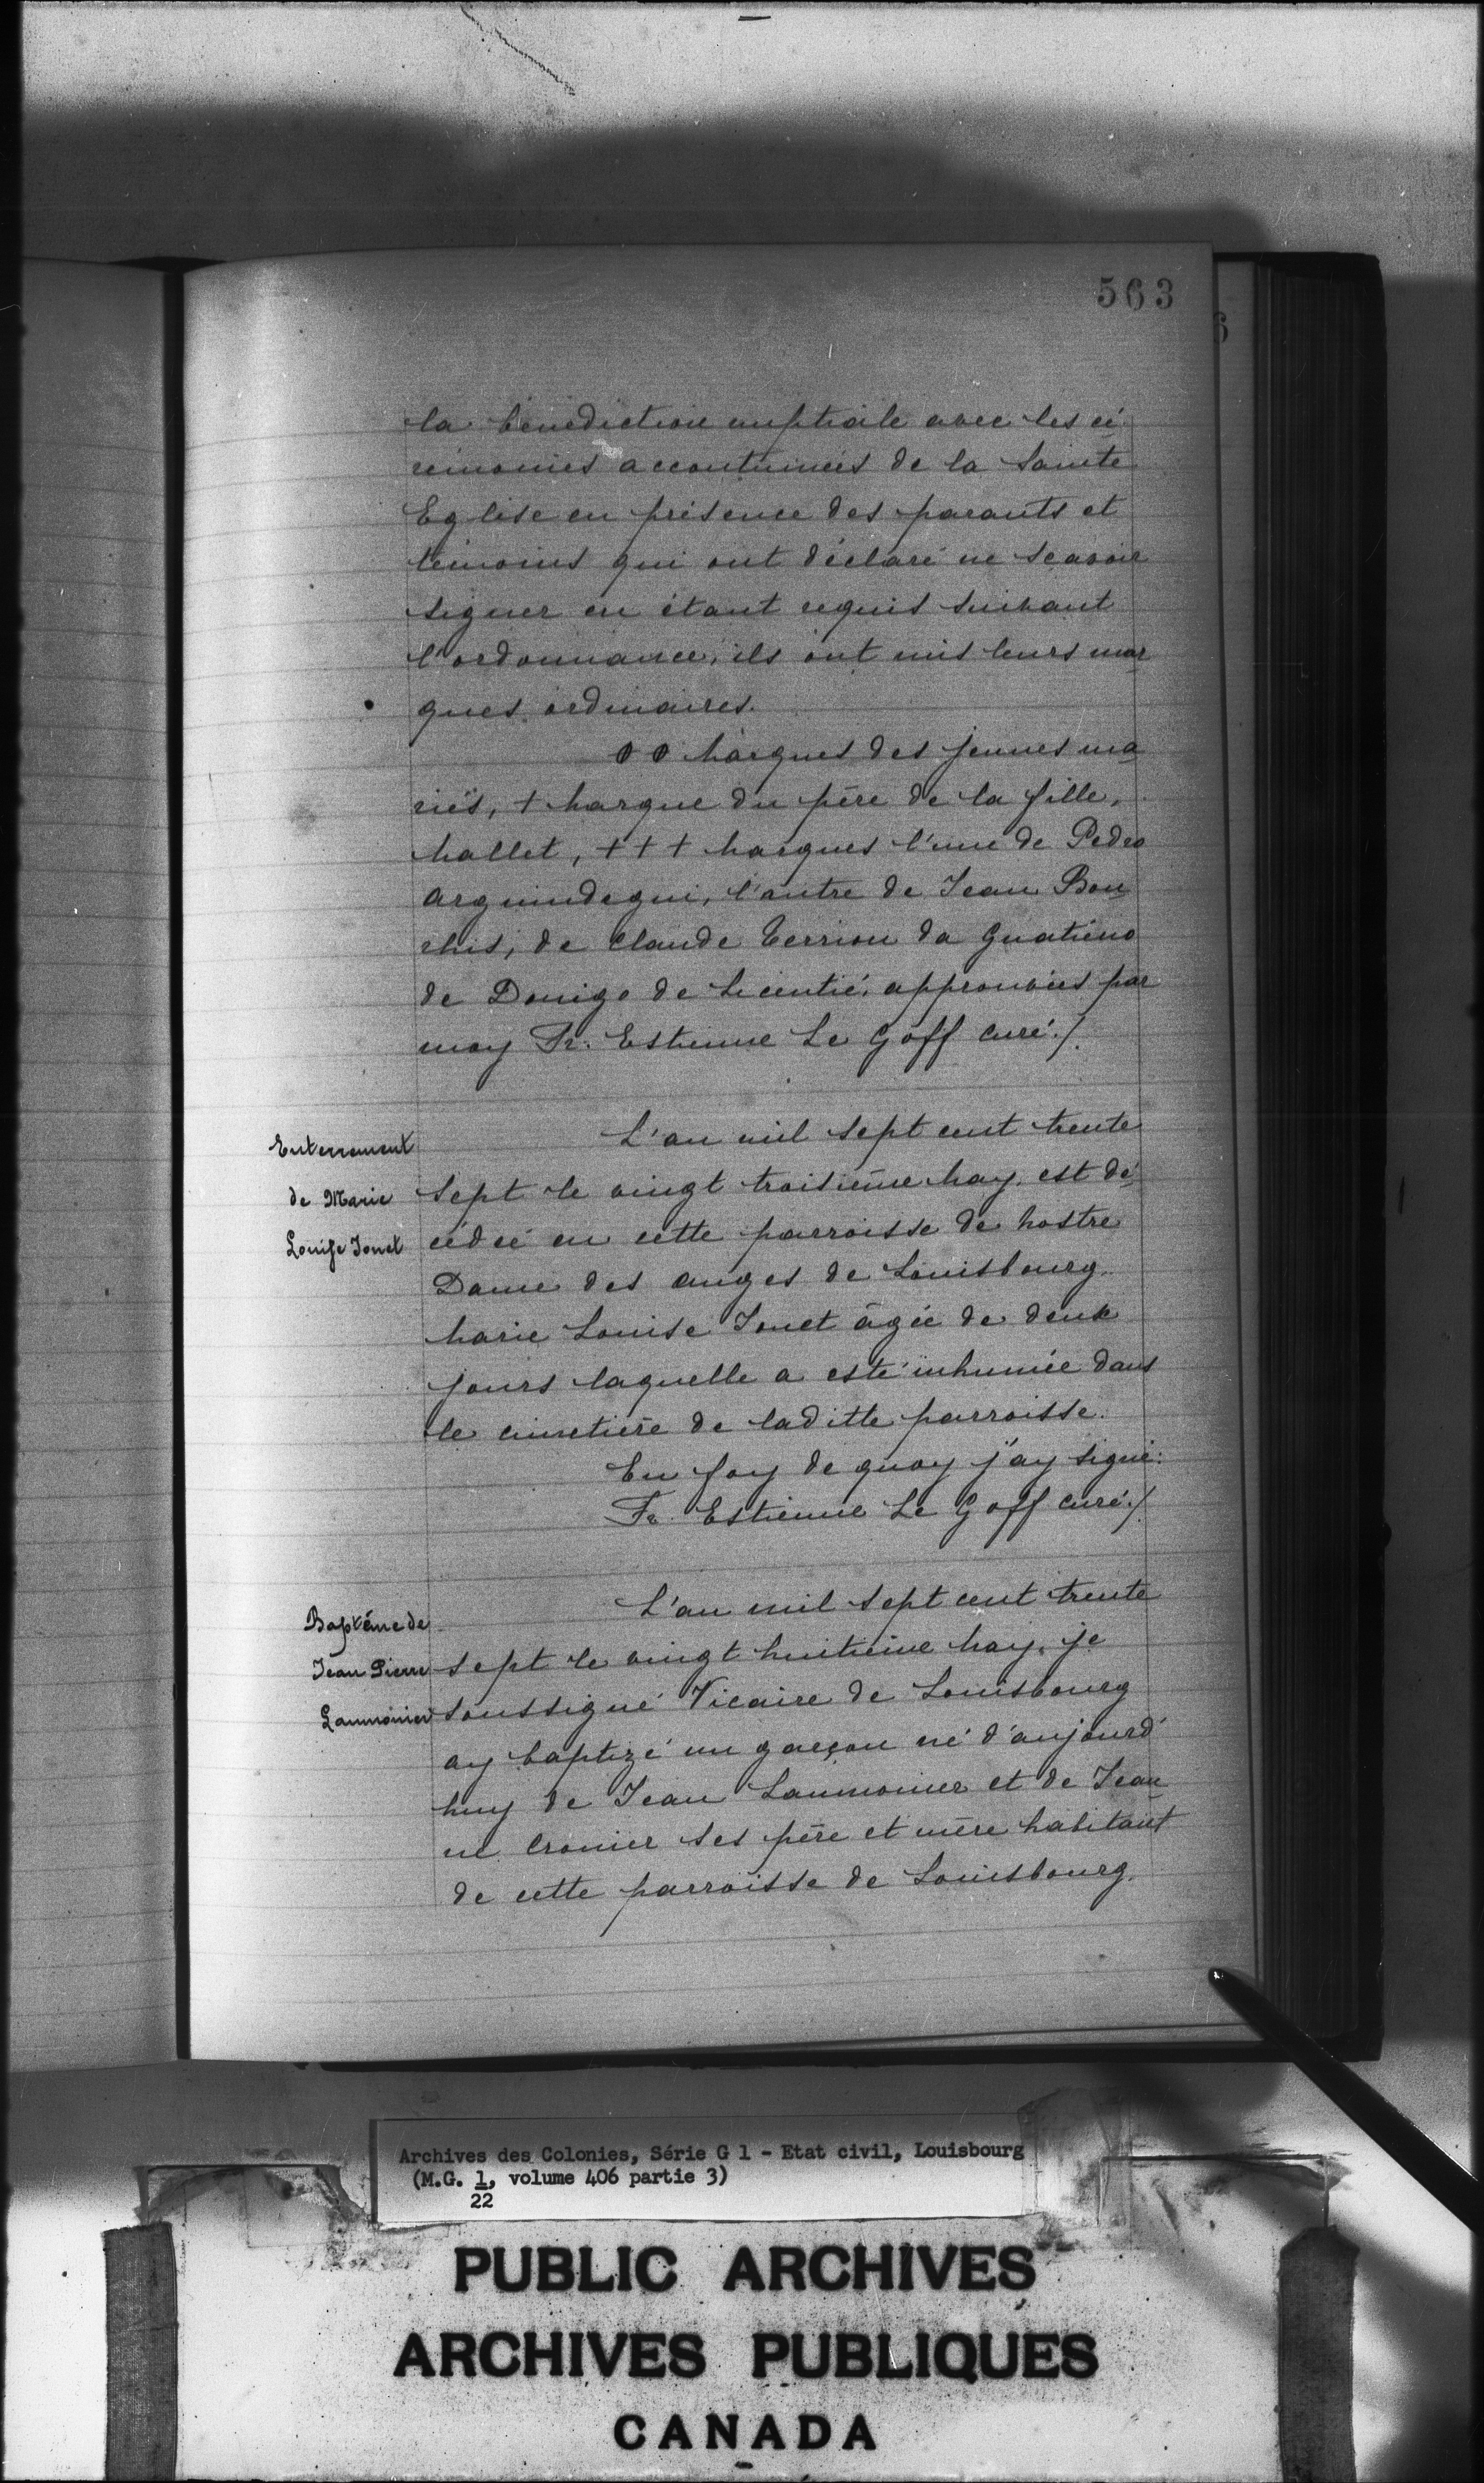 563
la bénédiction nuptiale avec les cé
rémonies accoutumées de la Sainte
Eglise en présence des parants et
témoins qui ont déclaré ne scavoir
signer en étant requis suivant
l'ordonnance, ils ont mis leurs mar
ques ordinaires.
0 0 Marques des jeunes ma
riés, + Marque du père de la fille,
Mallet, + + + Marques l'une de Pedro
Arguindegui, l'autre de Jean Bou
chis, de Claude Terriou da Guatieno
de Donigo de Licentié, approuvées par
moy Fr. Estienne Le Goff curé./.
Enterrement
de Marie
Louise Jouet
L'an mil sept cent trente
sept le vingt troisième May, est dé
cédée en cette parroisse de Nostre
Dame des anges de Louisbourg
Marie Louise Jouet âgée de deux
jours laquelle a esté inhumée dans
le cimetière de laditte parroisse.
En foy de quoy j'ay signé:
Fr. Estienne Le Goff curé./.
Baptême de
Jean Pierre
Laumonier
L'an mil sept cent trente
sept le vingt huitième May, je
soussigné Vicaire de Louisbourg
ay baptizé un garçon né d'aujourd'
huy de Jean Laumonier et de Jean
ne Cronier ses père et mère habitant
de cette parroisse de Louisbourg.
Archives des Colonies, Série G 1 - Etat civil, Louisbourg
(M.G. 1, volume 406 partie 3)
22
PUBLIC ARCHIVES
ARCHIVES PUBLIQUES
CANADA